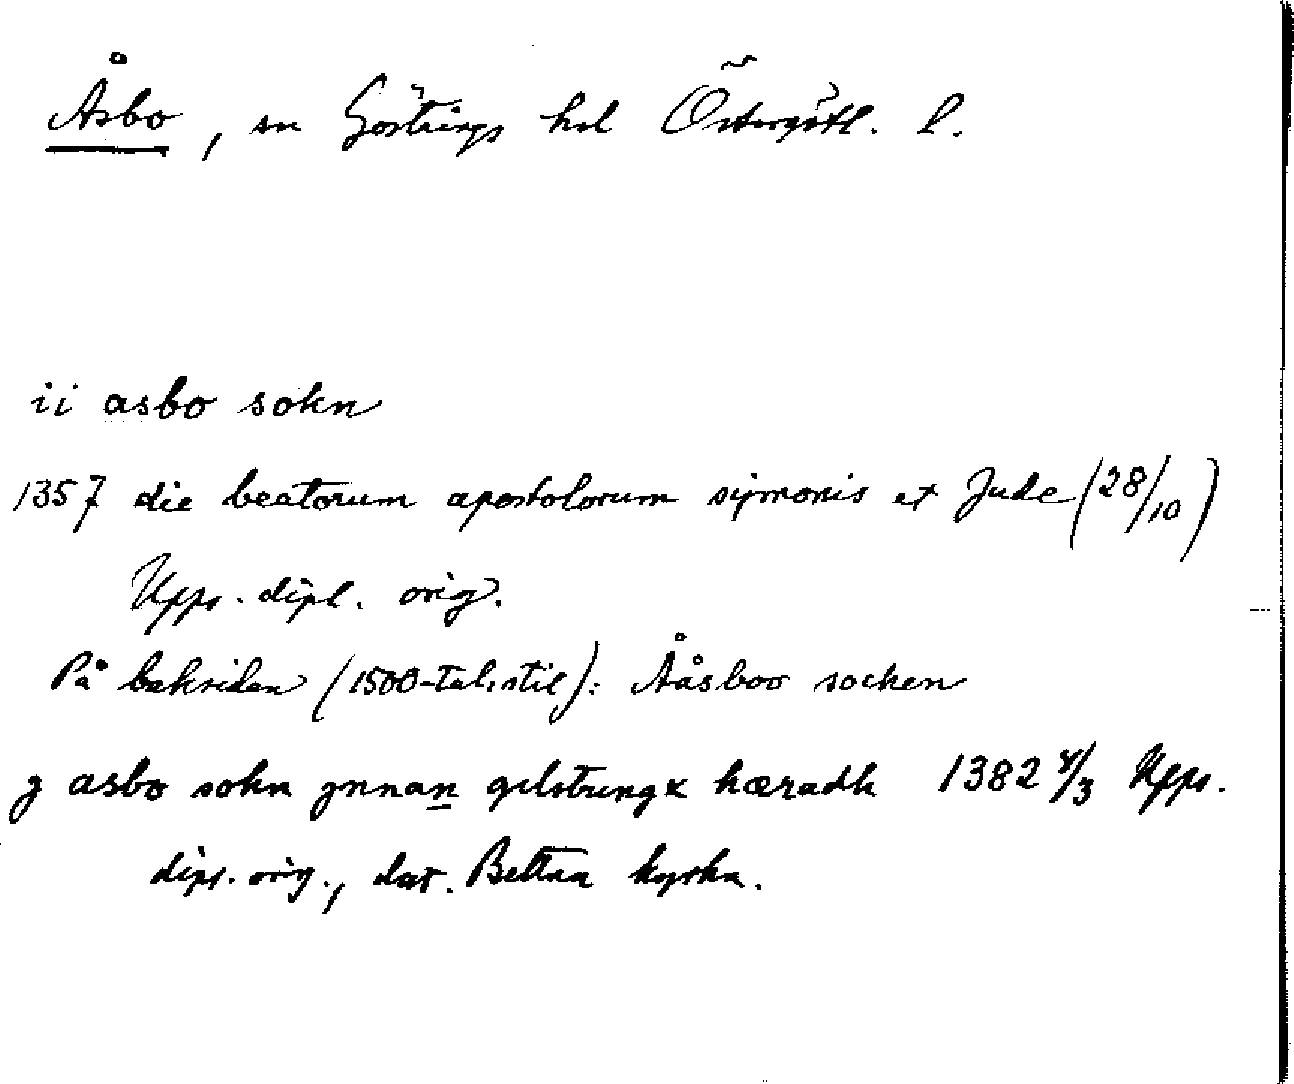 Åsbo, sn Göstrings hd Östergötl. l.
ii asbo sokn
1357 die beatorum apostolorum symonis et Jude (28/10)
Upps. dipl. orig.
På baksidan (1500-talsstil): Ååsboo socken
j asbo sokn jnnan gilstringx hæradh 1382 4/3 Upps.
dipl. orig., dat. Bellna kyrka.